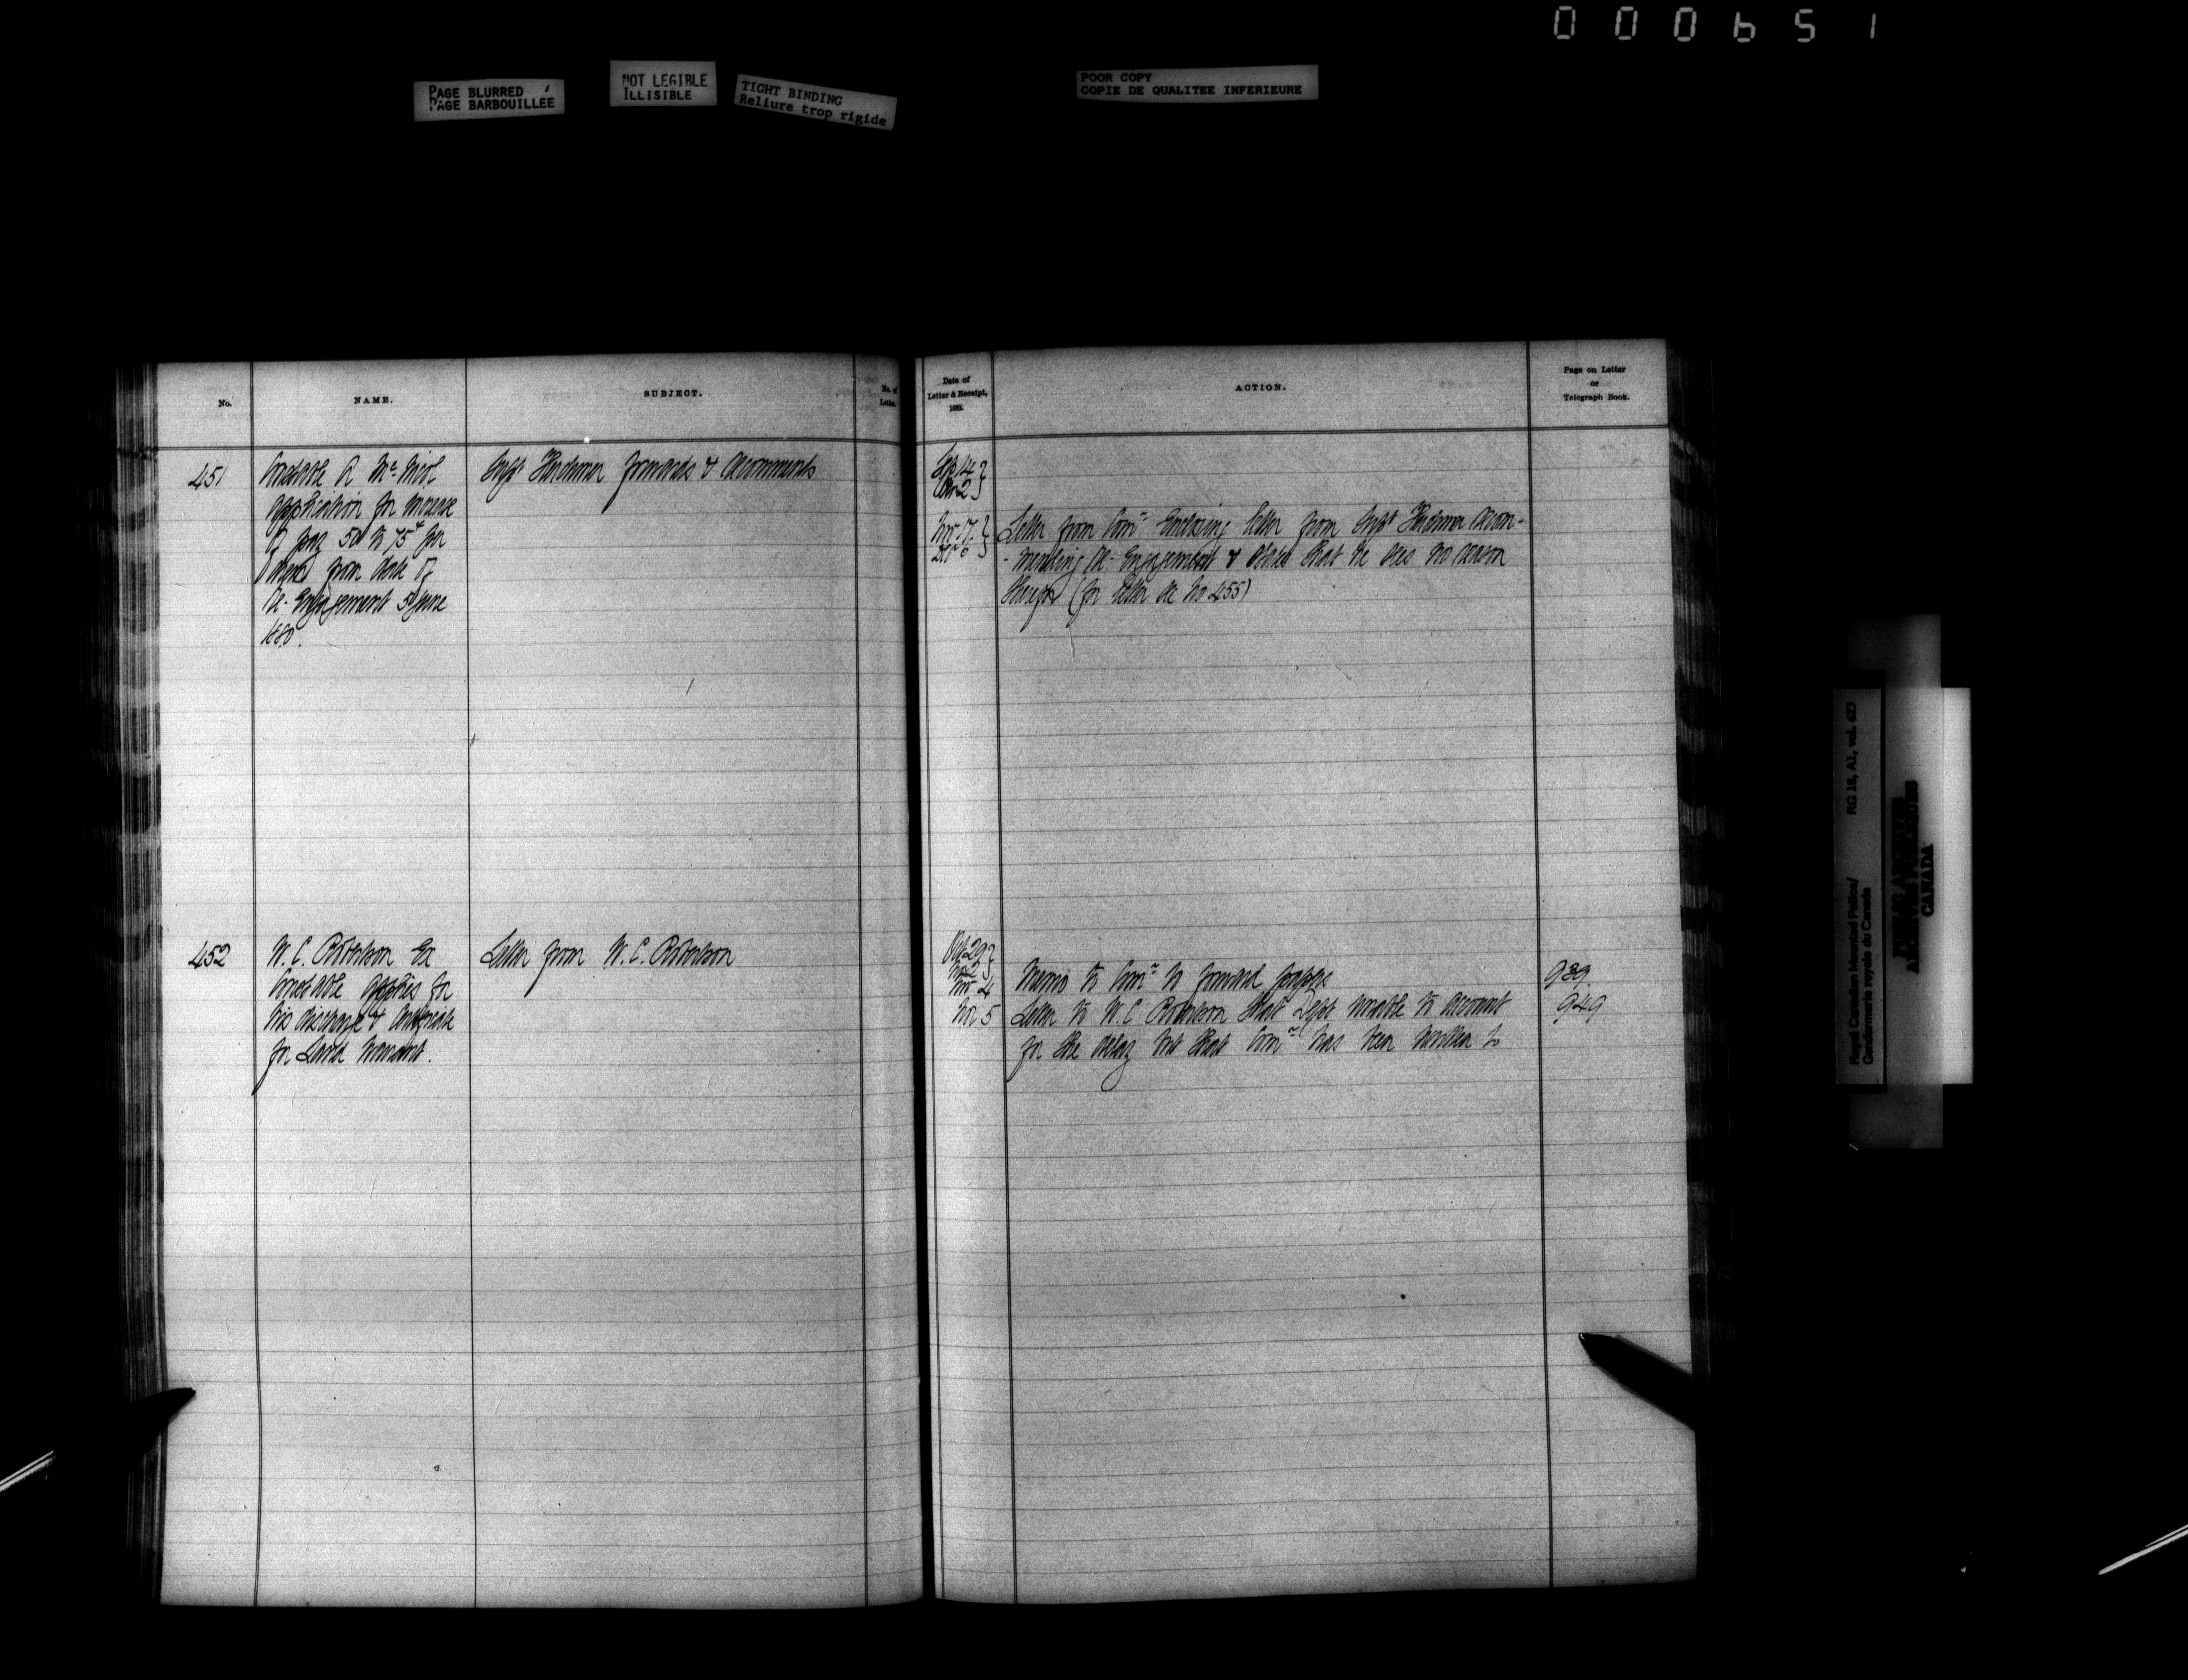 000651
PAGE BLURRED
PAGE BARBOUILLÉE
NOT LEGIBLE
ILLISIBLE
TIGHT BINDING
Reliure trop rigide
POOR COPY
COPIE DE QUALITEE INFERIEURE
No.
NAME.
SUBJECT.
No. of
Letter.
Date of
Letter & Receipt,
1880.
ACTION.
Page on Letter
or
Telegraph Book.
451
Constable A McNicol
application for increase
of pay 50 to 75¢ per
from date of
Re-Engagement 5 June
1880.
Supt Herchmer forwards & recommends
Sep 14
2
Nov 17
Dec 6
Letter from Comr Enclosing letter from Supt Herchmer recom-
-mending Re-Engagement & states that he sees no reason
therefor (for letter see No 455)
452
W. C. Robertson Ex
Constable applies for
his discharge & Certificate
for Land Warrant.
Letter from W. C. Robertson
Oct 29
Nov 2
Nov 4
Memo to Comr to forward papers
939
Nov 5
Letter to W. C. Robertson that Dept unable to account
949
for the delay but that Comr has been written to
Royal Canadian Mounted Police/
Gendarmerie royale du Canada
RG 18, A1, vol. 623
PUBLIC ARCHIVES
ARCHIVES PUBLIQUES
CANADA